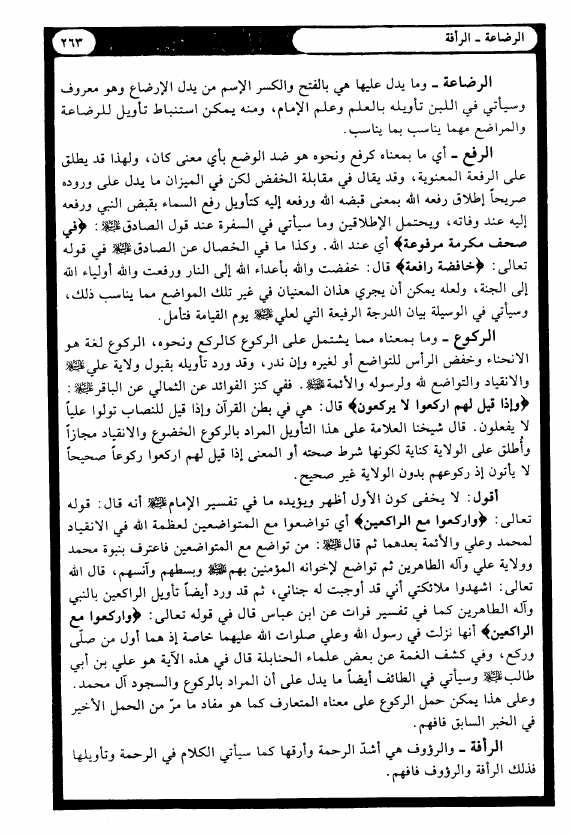 الرضاعة ـ الرأفة
٢٦٣
الرضاعة ـ وما يدل عليها هي بالفتح والكسر الإسم من يدل الإرضاع وهو معروف
وسيأتي في اللبن تأويله بالعلم وعلم الإمام، ومنه يمكن استنباط تأويل للرضاعة
والمراضع مهما يناسب بما يناسب.
الرفع ـ أي ما بمعناه كرفع ونحوه هو ضد الوضع بأي معنى كان، ولهذا قد يطلق
على الرفعة المعنوية، وقد يقال في مقابلة الخفض لكن في الميزان ما يدل على وروده
صريحاً إطلاق رفعه الله بمعنى قبضه الله ورفعه إليه كتأويل رفع السماء بقبض النبي ورفعه
إليه عند وفاته، ويحتمل الإطلاقين وما سيأتي في السفرة عند قول الصادق ﷺ: ﴿في
صحف مكرمة مرفوعة﴾ أي عند الله. وكذا ما في الخصال عن الصادق ﷺ في قوله
تعالى: ﴿خافضة رافعة﴾ قال: خفضت والله بأعداء الله إلى النار ورفعت والله أولياء الله
إلى الجنة، ولعله يمكن أن يجري هذان المعنيان في غير تلك المواضع مما يناسب ذلك،
وسيأتي في الوسيلة بيان الدرجة الرفيعة التي لعلي ﷺ يوم القيامة فتأمل.
الركوع ـ وما بمعناه مما يشتمل على الركوع كالركع ونحوه، الركوع لغة هو
الانحناء وخفض الرأس للتواضع أو لغيره وإن ندر، وقد ورد تأويله بقبول ولاية علي ﷺ
والانقياد والتواضع لله ولرسوله والأئمة ﷺ. ففي كنز الفوائد عن الثمالي عن الباقر ﷺ:
﴿وإذا قيل لهم اركعوا لا يركعون﴾ قال: هي في بطن القرآن وإذا قيل للنصاب تولوا علياً
لا يفعلون. قال شيخنا العلامة على هذا التأويل المراد بالركوع الخضوع والانقياد مجازاً
وأُطلق على الولاية كناية لكونها شرط صحته أو المعنى إذا قيل لهم اركعوا ركوعاً صحيحاً
لا يأتون إذ ركوعهم بدون الولاية غير صحيح.
أقول: لا يخفى كون الأول أظهر ويؤيده ما في تفسير الإمام ﷺ أنه قال: قوله
تعالى: ﴿واركعوا مع الراكعين﴾ أي تواضعوا مع المتواضعين لعظمة الله في الانقياد
لمحمد وعلي والأئمة بعدهما ثم قال ﷺ: من تواضع مع المتواضعين فاعترف بنبوة محمد
وولاية علي وآله الطاهرين ثم تواضع لإخوانه المؤمنين بهم ﷺ وبسطهم وآنسهم، قال الله
تعالى: اشهدوا ملائكتي أني قد أوجبت له جناني، ثم قد ورد أيضاً تأويل الراكعين بالنبي
وآله الطاهرين كما في تفسير فرات عن ابن عباس قال في قوله تعالى: ﴿واركعوا مع
الراكعين﴾ أنها نزلت في رسول الله وعلي صلوات الله عليهما خاصة إذ هما أول من صلّى
وركع، وفي كشف الغمة عن بعض علماء الحنابلة قال في هذه الآية هو علي بن أبي
طالب ﷺ وسيأتي في الطائف أيضاً ما يدل على أن المراد بالركوع والسجود آل محمد.
وعلى هذا يمكن حمل الركوع على معناه المتعارف كما هو مفاد ما مرّ من الحمل الأخير
في الخبر السابق فافهم.
الرأفة ـ والرؤوف هي أشدّ الرحمة وأرقها كما سيأتي الكلام في الرحمة وتأويلها
فذلك الرأفة والرؤوف فافهم.